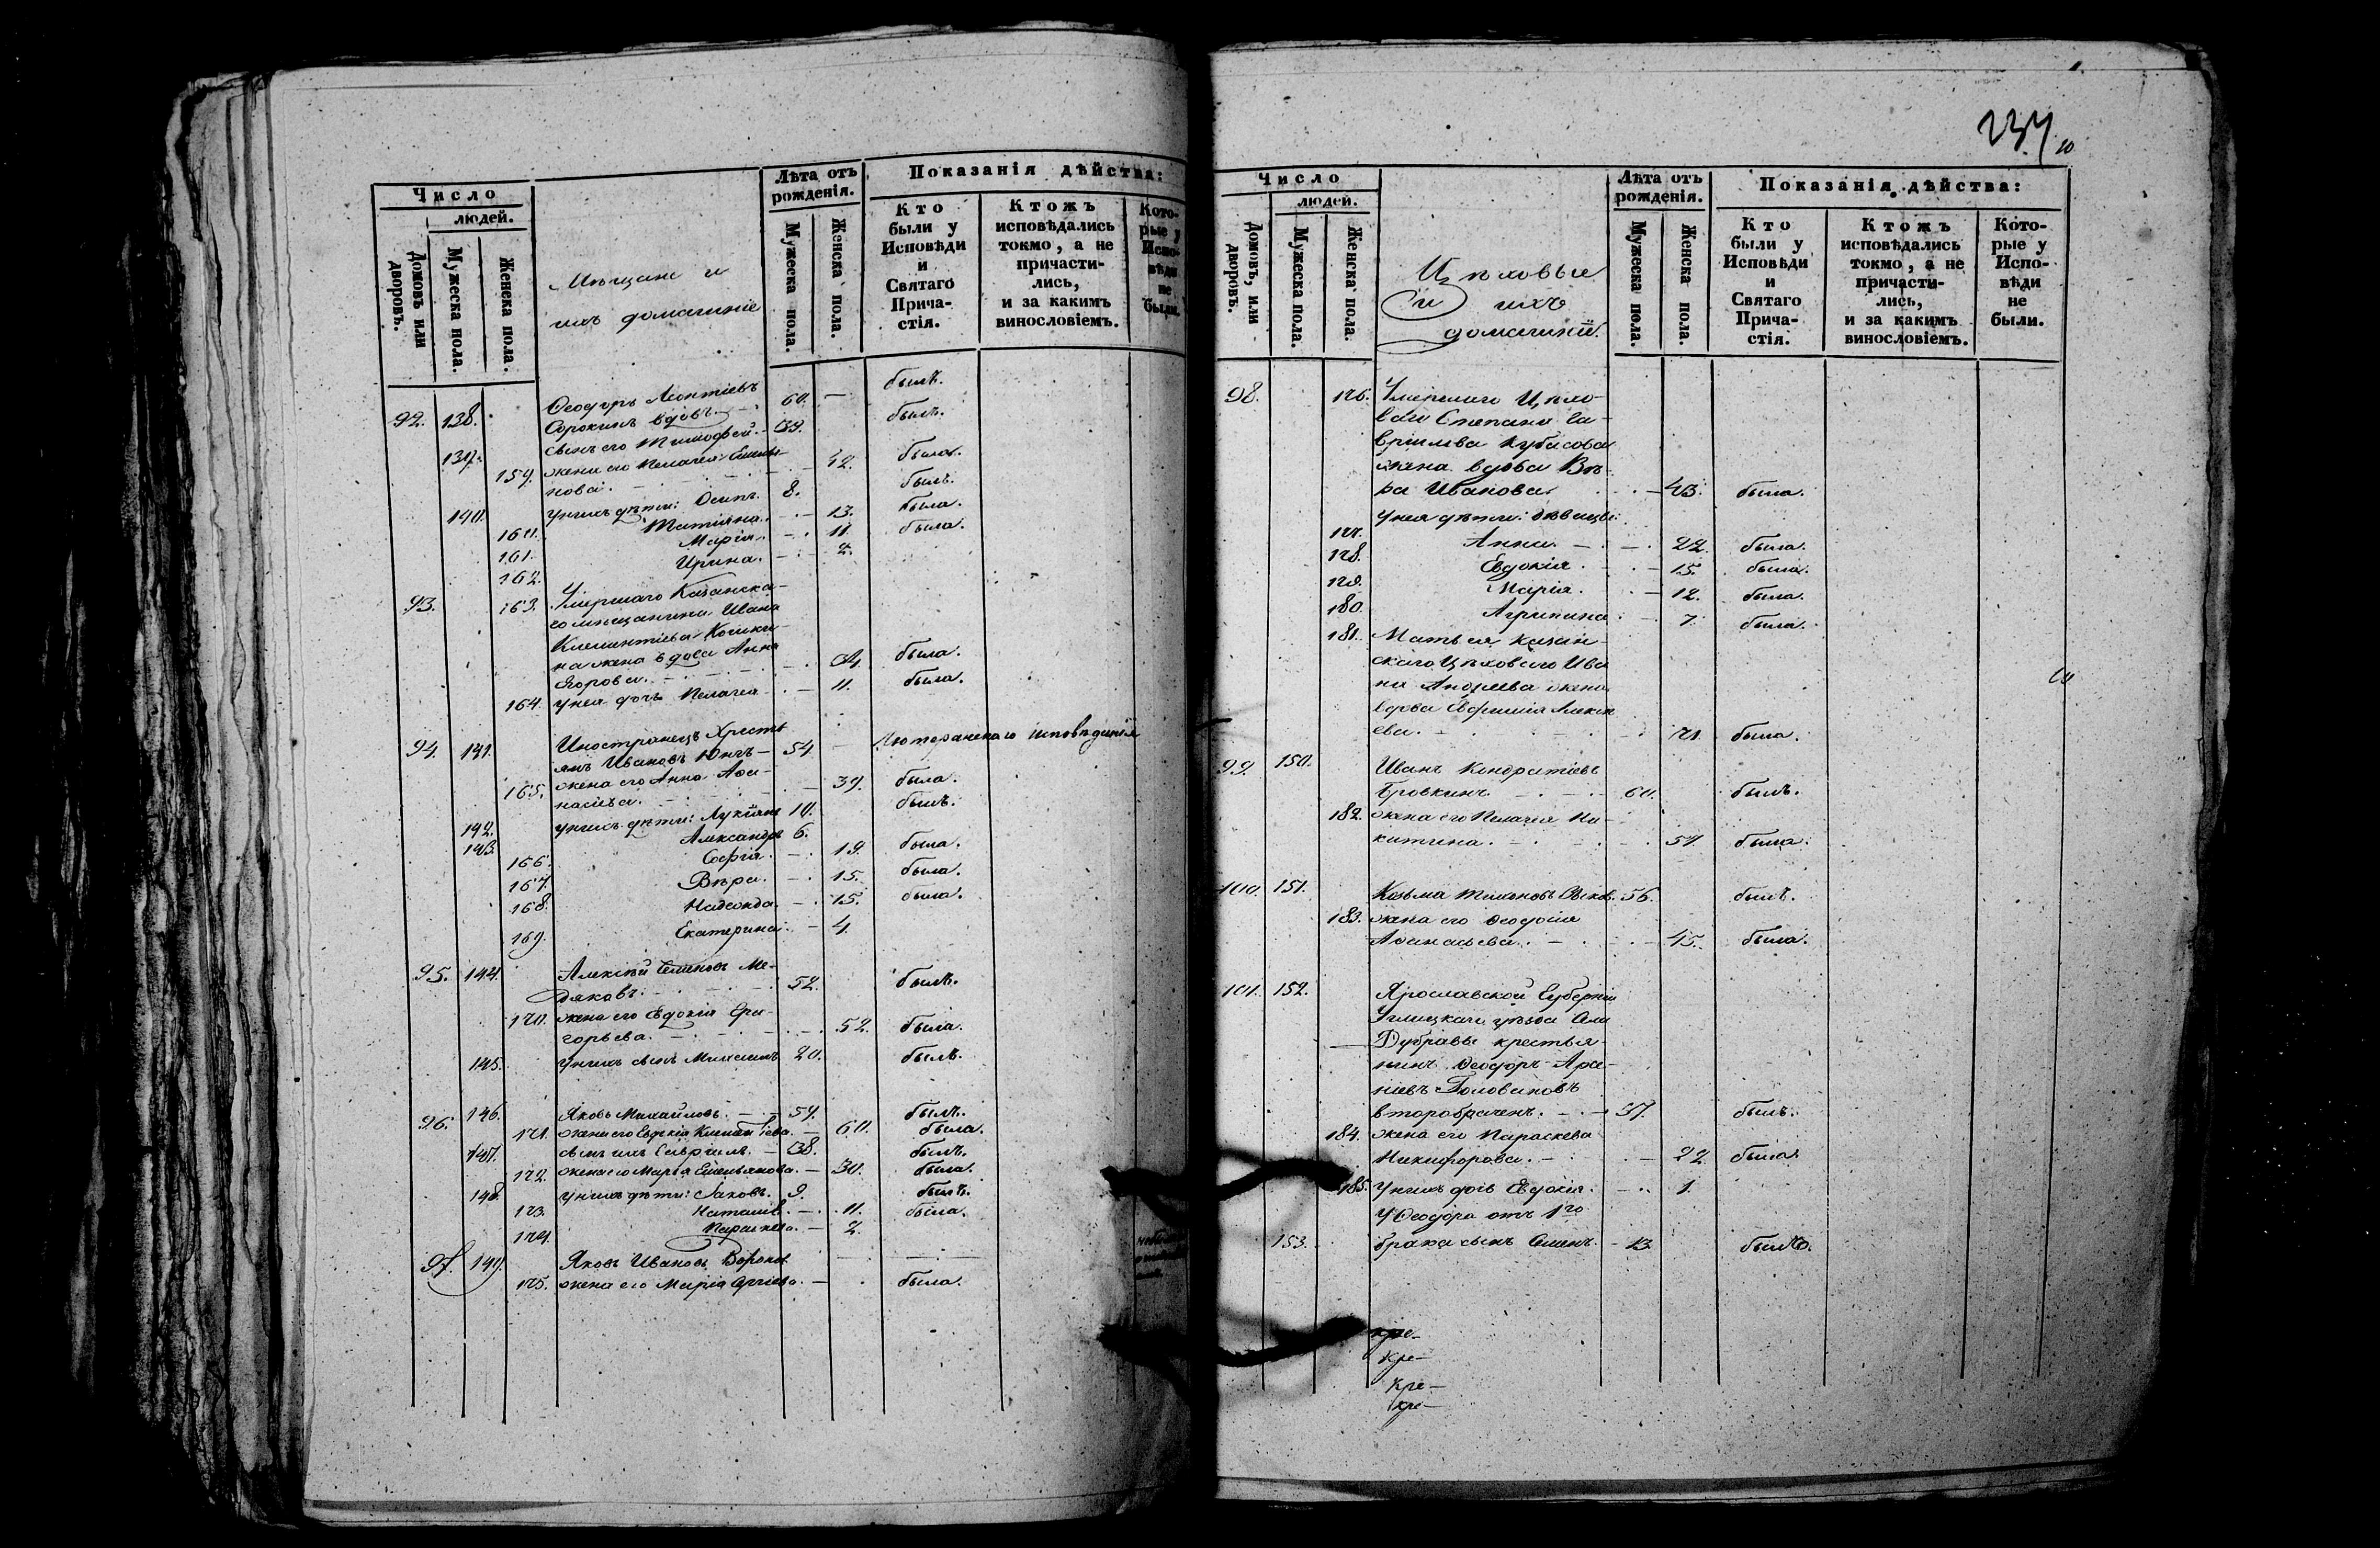 Число
людей.
Домовъ или дворовъ.
Мужеска пола.
Женска пола.
Мѣщане и
ихъ домашніе
Лѣта отъ
рожденія.
Мужеска пола.
Женска пола.
Показанія дѣйства:
Кто
были у
Исповѣди
и
Святаго
Прича-
стія.
Ктожъ
исповѣдались
токмо, а не
причасти-
лись,
и за какимъ
винословіемъ.
Кото-
рые у
Испо-
вѣди
не
были.
92. 138. Ѳеодоръ Леонтіевъ
Сорокинъ вдовъ 60. былъ.
139. сынъ его Тимофей. 39. былъ.
159. жена его Пелагея Семе-
нова. 42. была.
140. у нихъ дѣти: Осипъ. 8. былъ.
160. Татіяна. 13. была.
161. Марія. 11. была.
162. Ирина. 2.
93. 163. Умершаго Казанска-
го мѣщанина Ивана
Климентіева
на жена вдова Анна
Егорова. была.
164. у нея дочь Пелагея 11. была.
94. 141. Иностранецъ Христі
янъ Ивановъ Юнгъ 54. Лютеранскаго исповѣданія
165. жена его Анна Афа-
насіева. 39. была.
142. у нихъ дѣти: Лукіянъ 10. былъ.
143. Александръ 6.
166. Софія. 19. была.
167. Вѣра. 15. была.
168. Надежда. 15. была.
169. Екатерина. 4.
95. 144. Алексѣй Семеновъ Ме-
дяковъ. 52. былъ.
170. жена его Евдокія Гри-
горьева. 52. была.
145. у нихъ сынъ Максимъ 20. былъ.
96. 146. Яковъ Михайловъ. 59. былъ.
171. жена его Евдокія Климентіева. 60. была.
147. сынъ ихъ Гавріилъ. 38. былъ.
172. жена его Марія Емельянова. 30. была.
148. у нихъ дѣти: Іаковъ. 9. былъ.
173. Наталія. 11. была.
174. Параскева. 2.
97. 149. Яковъ Ивановъ
175. жена его Марія была.
237
10
Число
людей.
Домовъ, или дворовъ.
Мужеска пола.
Женска пола.
Цѣховые
и ихъ
домашніе.
Лѣта отъ
рожденія.
Мужеска пола.
Женска пола.
Показанія дѣйства:
Кто
были у
Исповѣди
и
Святаго
Прича-
стія.
Ктожъ
исповѣдались
токмо, а не
причасти-
лись,
и за какимъ
винословіемъ.
Кото-
рые у
Испо-
вѣди
не
были.
98. 176. Умершаго Цѣхо-
ваго Степана Га-
вріилова Кубасова
жена вдова Вѣ-
ра Иванова. 43. была.
у нея дѣти: дѣвицы:
177. Анна. 22. была.
178. Евдокія. 15. была.
179. Марія. 12. была.
180. Агрипина. 7. была.
181. Мать ея Казан-
скаго Цѣховаго Ива
на Андреева жена
вдова Евфимія Алекс
ева. 71. была.
99. 150. Иванъ Кондратіевъ
Бровкинъ. 60. былъ.
182. жена его Пелагея Ни-
китина. 57. была.
100. 151. Козьма Тихоновъ 56. былъ.
183. жена его Ѳеодосія
Афанасьева. 45. была.
101. 152. Ярославской Губерніи
Углицкаго уѣзда Села
Дубравы крестья-
нинъ Ѳеодоръ Арсе-
ніевъ Головановъ
второбраченъ. 37. былъ.
184. жена его Параскева
Никифорова. 22. была.
185. у нихъ дочь Евдокія. 1.
у Ѳеодора отъ 1го
153. брака сынъ Семенъ. 13. былъ.
кре-
кре-
кре-
кре-